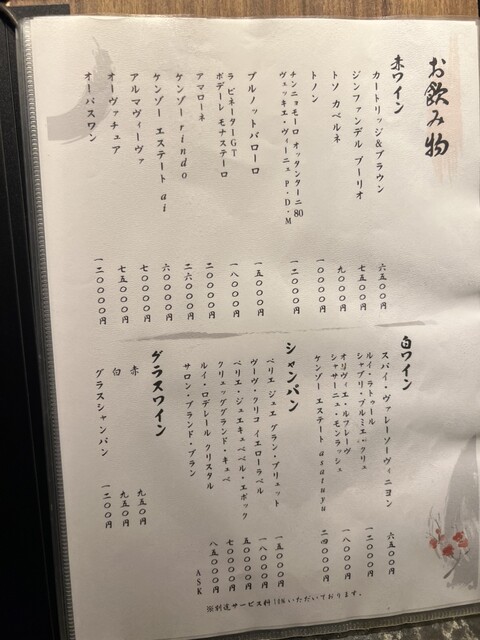 お飲み物
赤ワイン
カートリッジ&ブラウン 六五〇〇円
ジンファンデル プーリオ 七五〇〇円
トソ カベルネ 九〇〇〇円
トノン 一〇〇〇〇円
チンニョモーロ オッタンターニ80
ヴェッキエ・ヴィーニュ P・D・M 一二〇〇〇円
ブルノットバローロ 一五〇〇〇円
ラ ピネーターGT
ボデーレ モナステーロ 一八〇〇〇円
アマローネ 二〇〇〇〇円
ケンゾーrindo 二六〇〇〇円
ケンゾー エステート ai 六〇〇〇〇円
アルマヴィーヴァ 七〇〇〇〇円
オーヴァチュア 七五〇〇〇円
オーパスワン 一二〇〇〇〇円
白ワイン
スパイ・ヴァレーソーヴィニヨン 六五〇〇円
ルイ・ラトゥール
シャブリ・プルミエ・クリュ 一二〇〇〇円
オリヴィエ・ルフレーヴ
シャサーニュ・モンラッシェ 一八〇〇〇円
ケンゾー エステート asatuyu 二四〇〇〇円
シャンパン
ベリエ ジュエ グラン・ブリュット 一五〇〇〇円
ヴーヴ・クリコ イエローラベル 一八〇〇〇円
ベリエ・ジュエキュベベル・エポック 五〇〇〇〇円
クリュッググランド・キュベ 七〇〇〇〇円
ルイ・ロデレール クリスタル 八五〇〇〇円
サロン・ブランド・ブラン ASK
グラスワイン
赤 九五〇円
白 九五〇円
グラスシャンパン 一二〇〇円
※別途サービス料10%いただいております。